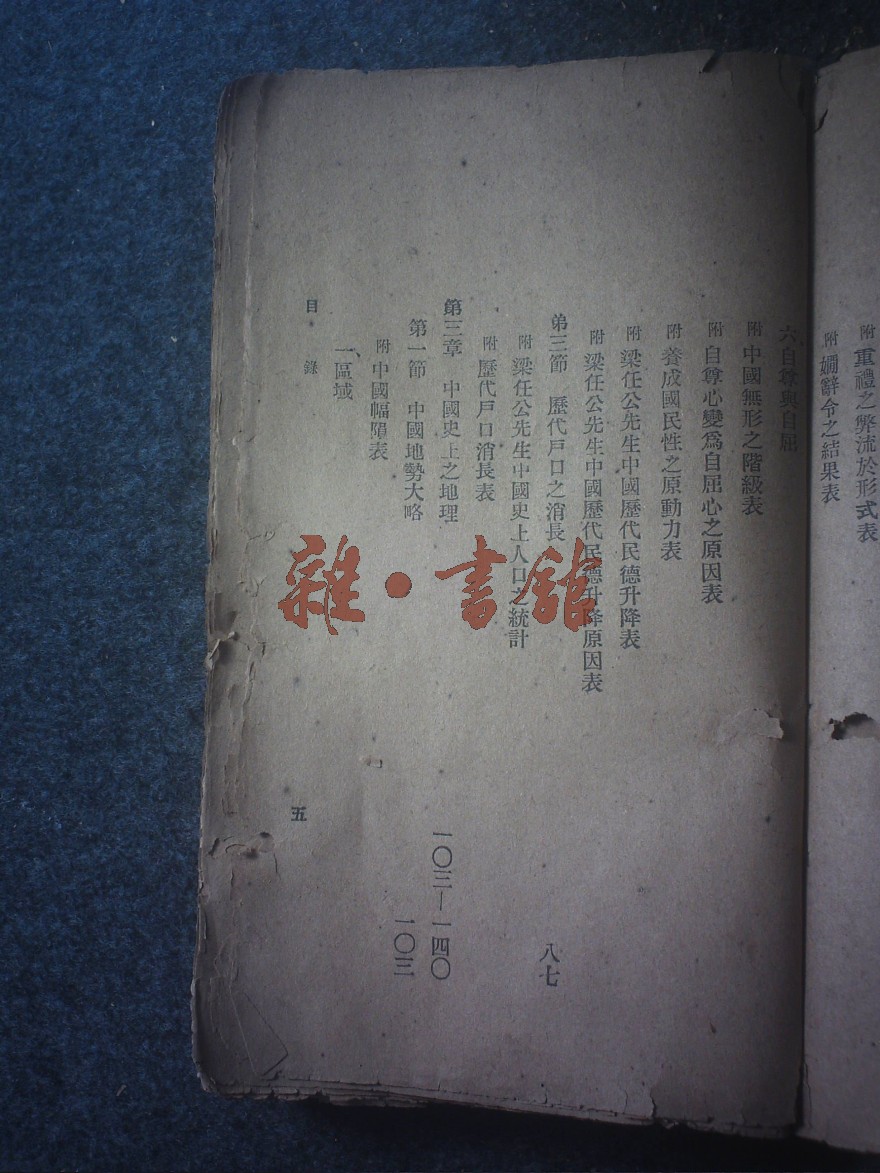 附 重禮之弊流於形式表
附 嫺辭令之結果表
六、自尊與自屈
附 中國無形之階級表
附 自尊心變爲自屈心之原因表
附 養成國民性之原動力表
附 梁任公先生中國歷代民德升降表
附 梁任公先生中國歷代民德升降原因表
第三節 歷代戸口之消長 八七
附 梁任公先生中國史上人口之統計
附 歷代戸口消長表
第三章 中國史上之地理 一〇三—一四〇
第一節 中國地勢大略 一〇三
附 中國幅隕表
一、區域
目 錄 五
雜·書館